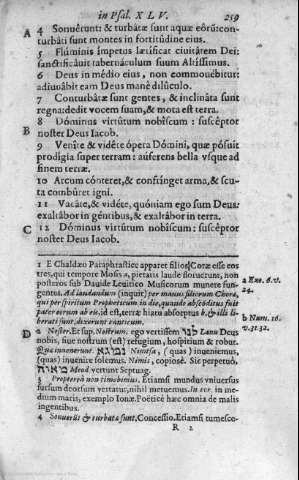 in Psal. XLV. 259
A 4 Sonuérunt: & turbatæ sunt aquæ eórũ: con-
turbáti sunt montes in fortitúdine eius.
5 Flúminis ímpetus lætíficat ciuitátem Dei:
sanctificáuit tabernáculum suum Altíssimus.
6 Deus in médio eius, non commouébitur:
adiuuábit eam Deus manè dilúculo.
7 Conturbátæ sunt gentes, & inclináta sunt
regna: dedit vocem suam, & mota est terra.
8 Dóminus virtútum nobíscum: suscéptor
noster Deus Iacob.
B
9 Veníte & vidéte ópera Dómini, quæ pósuit
prodígia super terram: áuferens bella vsque ad
finem terræ.
10 Arcum cónteret, & confrínget arma, & scu-
ta combúret igni.
11 Vacáte, & vidéte, quóniam ego sum Deus:
exaltábor in géntibus, & exaltábor in terra.
C 12 Dóminus virtútum nobíscum: suscéptor
noster Deus Iacob.
1 E Chaldæo Paraphraste apparet filios Coræ esse eos
tres, qui tempore Mosis a, pietatis laude floruerunt, non
posteros sub Dauide Leuitico Musicorum munere fun-
gentes. Ad laudandum (inquit) per manus filiorum Chore,
qui per spiritum Propheticum in die, quando absconditus fuit
pater eorum ab eis, id est, terra hiatu absorptus b, & illi li-
berati sunt, dixerunt canticum.
a Exo. 6. v.
24.
b Num. 16.
v. 31. 32.
D 2 Noster. Et sup. Nostrum. ego vertissem לנו Lanu Deus
nobis, siue nostrum (est) refugium, hospitium & robur.
Quæ inuenerunt. נמצא Nimtsa, (quas) inueniemus,
(quas) inuenire solemus. Nimis, copiosè. Sic perpetuò,
מאוד Meod vertunt Septuag.
3 Propterea non timebimus. Etiamsi mundus vniuersus
sursum deorsum vertatur, nihil metuemus. In cor, in me-
dium maris, exemplo Ionæ. Poëticè hæc omnia de malis
ingentibus.
4 Sonuerũt & turbatæ sunt. Concessio. Etiamsi tumesco-
R 2